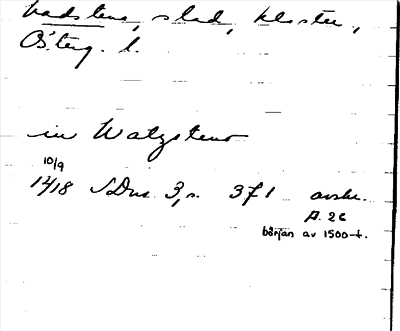 Vadstena, stad, kloster,
Österg. l.
in Watzsteno
10/9
1418 SDns 3, s. 371 avskr.
A. 26
början av 1500-t.